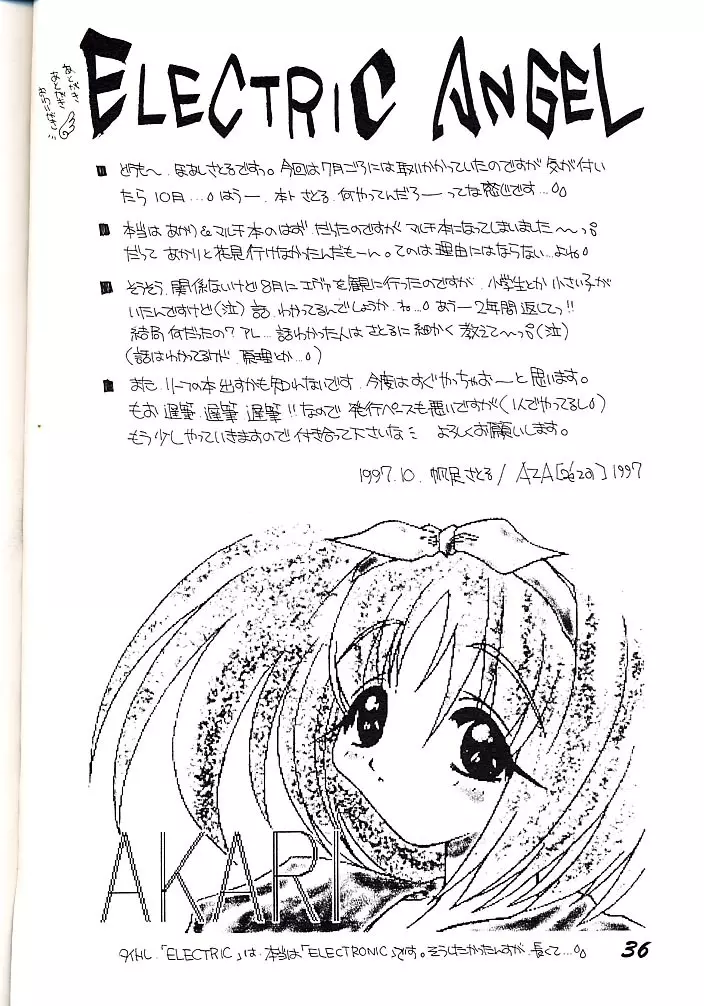 ELECTRIC ANGEL
あとがき
あとがき
■ どうも〜、ほあしさとるですっ。今回は7月ごろには取りかかっていたのですが気が付い
たら10月…。はうー、本ト さとる、何やってんだろーってな感じです…。
■ 本当はあかり&マルチ本のはずだったのですがマルチ本になってしまいました〜っ。
だって あかりと花見行けなかったんだもーん。てのは理由にはならない…よね。
■ そうそう、関係ないけど8月にエヴァを観に行ったのですが、小学生とか小さい子が
いたんですけど(泣)話、わかってるんでしょうか、ね…。あうー2年間返してっ!!
結局何だったの?アレ…話わかった人は さとるに細かく教えて〜っ。(泣)
(話はわかってるけど、原理とか…。)
■ また リーフの本出すかも知れないです、今度はすぐやっちゃおーと思います。
もお 遅筆、遅筆、遅筆!!なので 発行ペースも悪いですが(1人でやってるし)
もう少しやっていきますので付き合って下さいな よろしくお願いします。
1997.10. 帆足さとる/AZA 1997
AKARI
タイトル「ELECTRIC」は、本当は「ELECTRONIC」です。そうしたかったんすが、長くて…。
36